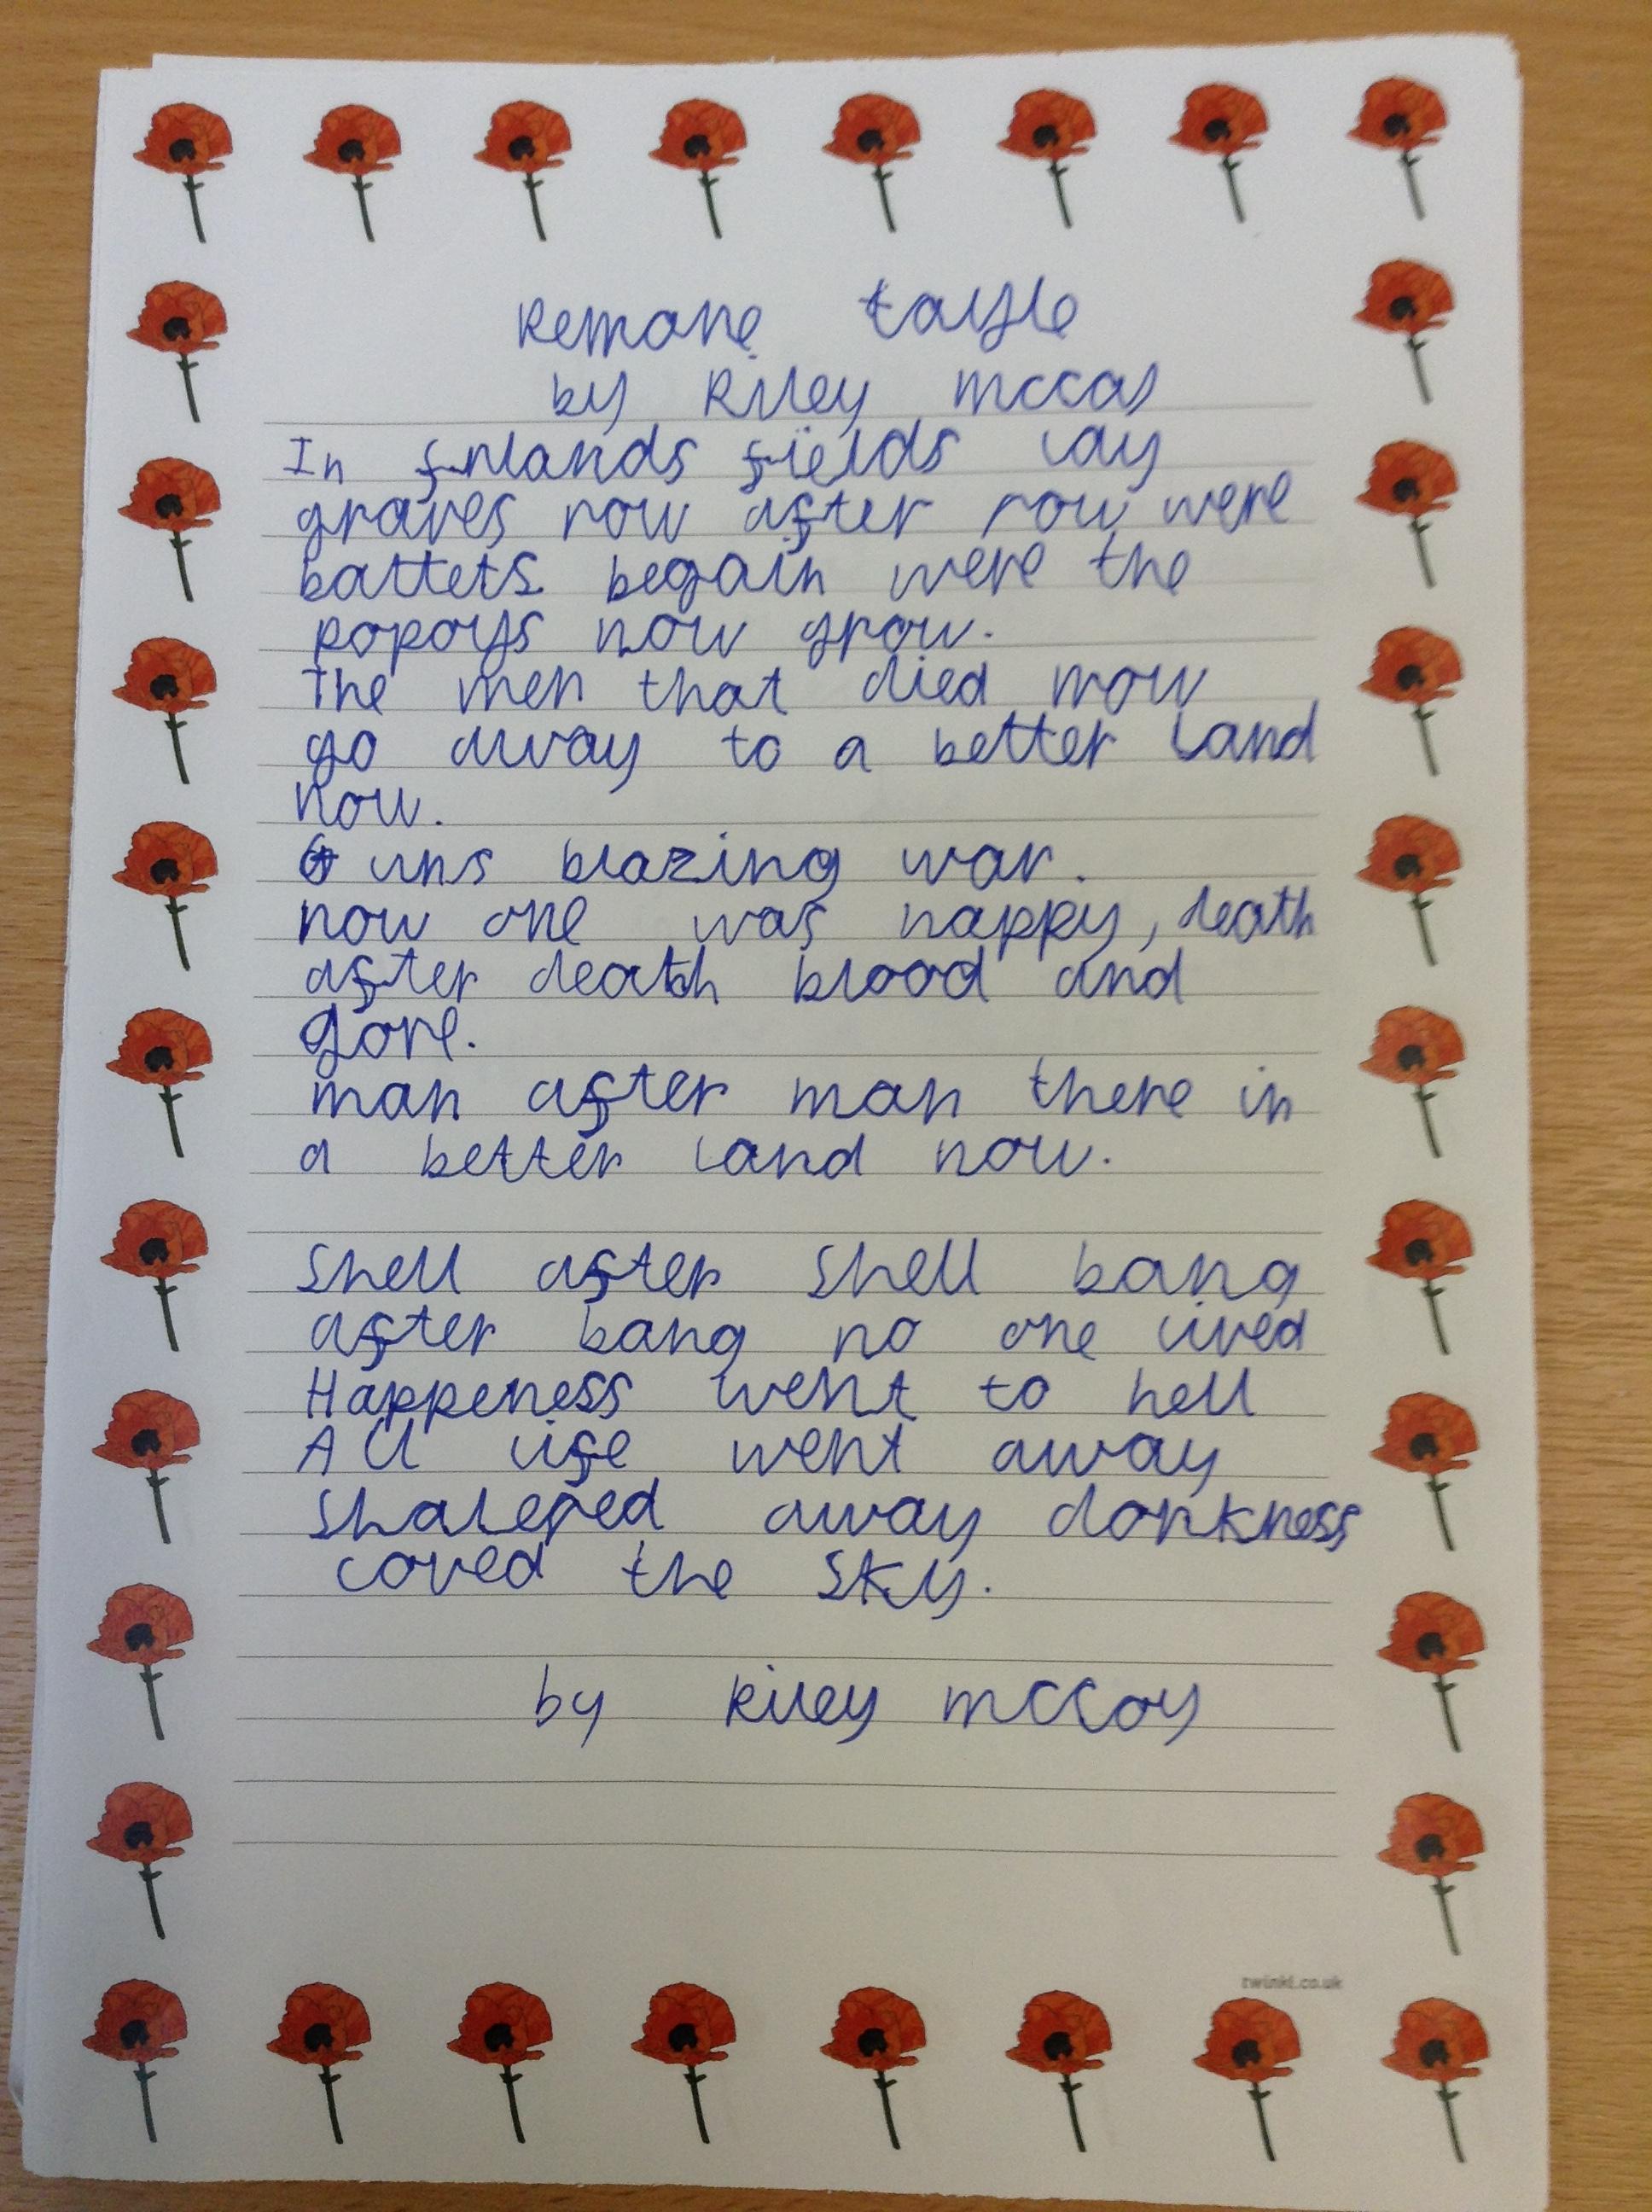 Remone tayle
by Riley mccoy
In fnlands fields lay
graves row after row were
battets begain were the
popoys now grow.
The men that died mow
go away to a better land
now.
Guns blazing war.
now one was happy, death
after death blood and
gore.
man after man there in
a better land now.
Shell after shell bang
after bang no one lived
Happeness went to hell
All life went away
shalered away darkness
coved the sky.
by Riley mccoy
twinkl.co.uk